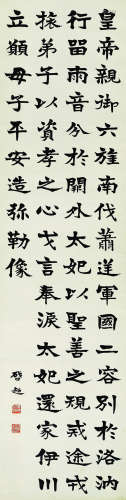 皇帝親御六旌南伐蕭逆軍國二容別於洛汭
行留雨音分於闕外太妃以聖善之規戒途戒
旅弟子以資孝之心戈言奉淚太妃還家伊川
立願母子平安造弥勒像
啓超